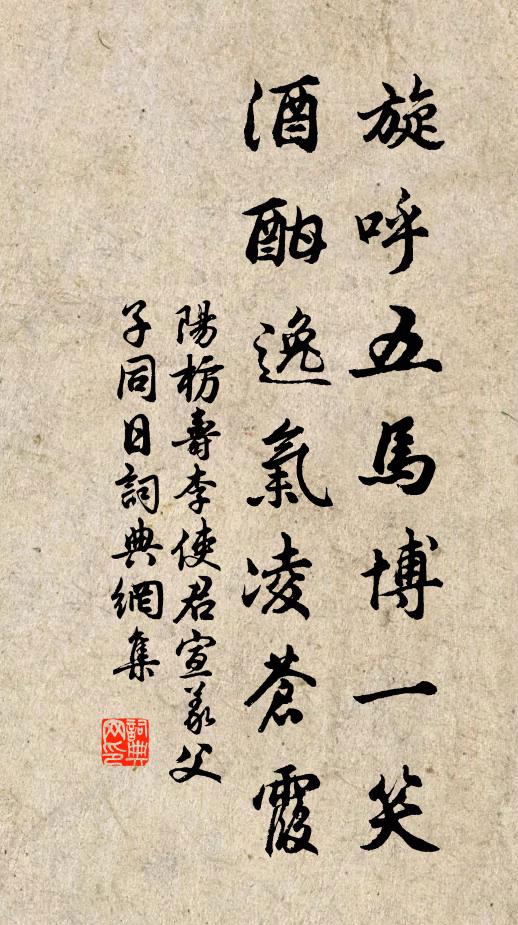 旋呼五馬博一笑
酒酣逸氣凌蒼霞
陽枋壽李使君宣義父
子同日詞典網集
詞典
网印